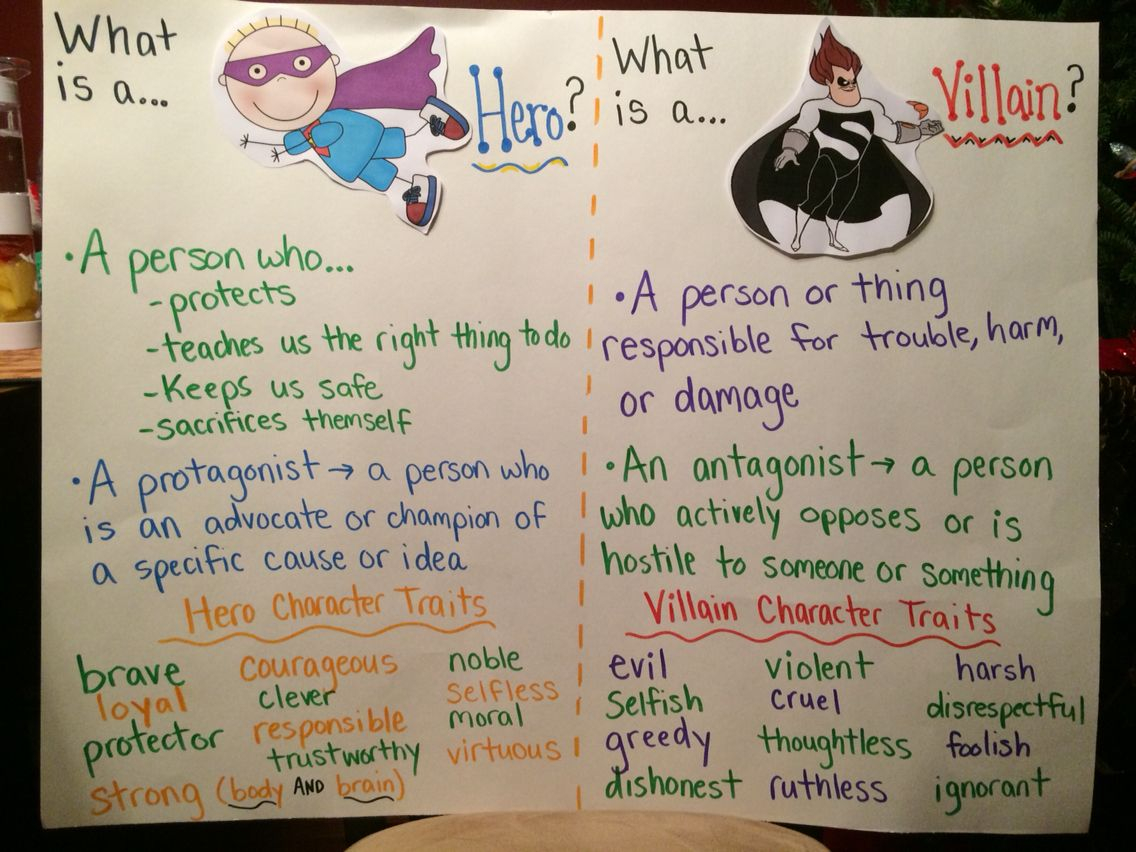 What
is a...
Hero?
• A person who...
- protects
- teaches us the right thing to do
- Keeps us safe
- sacrifices themself
• A protagonist → a person who
is an advocate or champion of
a specific cause or idea
Hero Character Traits
brave courageous noble
loyal clever selfless
protector responsible moral
trustworthy virtuous
strong (body AND brain)
What
is a...
S
Villain?
• A person or thing
responsible for trouble, harm,
or damage
• An antagonist → a person
who actively opposes or is
hostile to someone or something
Villain Character Traits
evil violent harsh
Selfish cruel disrespectful
greedy thoughtless foolish
dishonest ruthless ignorant